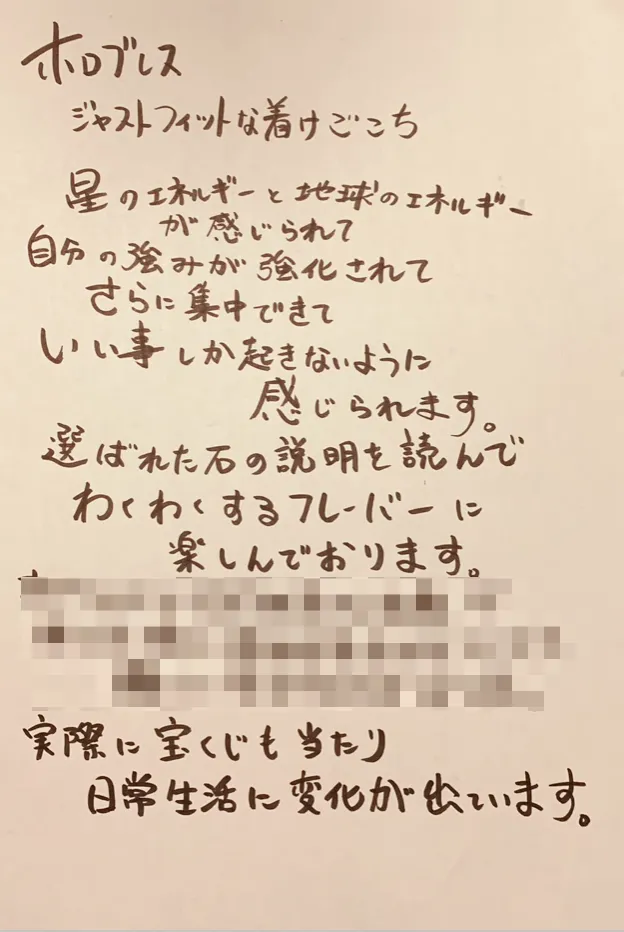 ホロブレス
ジャストフィットな着けごこち
星のエネルギーと地球のエネルギー
が感じられて
自分の強みが強化されて
さらに集中できて
いい事しか起きないように
感じられます。
選ばれた石の説明を読んで
わくわくするフレーバーに
楽しんでおります。
実際に宝くじも当たり
日常生活に変化が出ています。